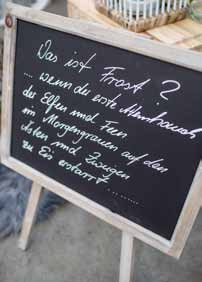 Das ist Frost?
... wenn der erste Atemhauch
der Elfen und Feen
im Morgengrauen auf den
Ästen und Zweigen
zu Eis erstarrt........